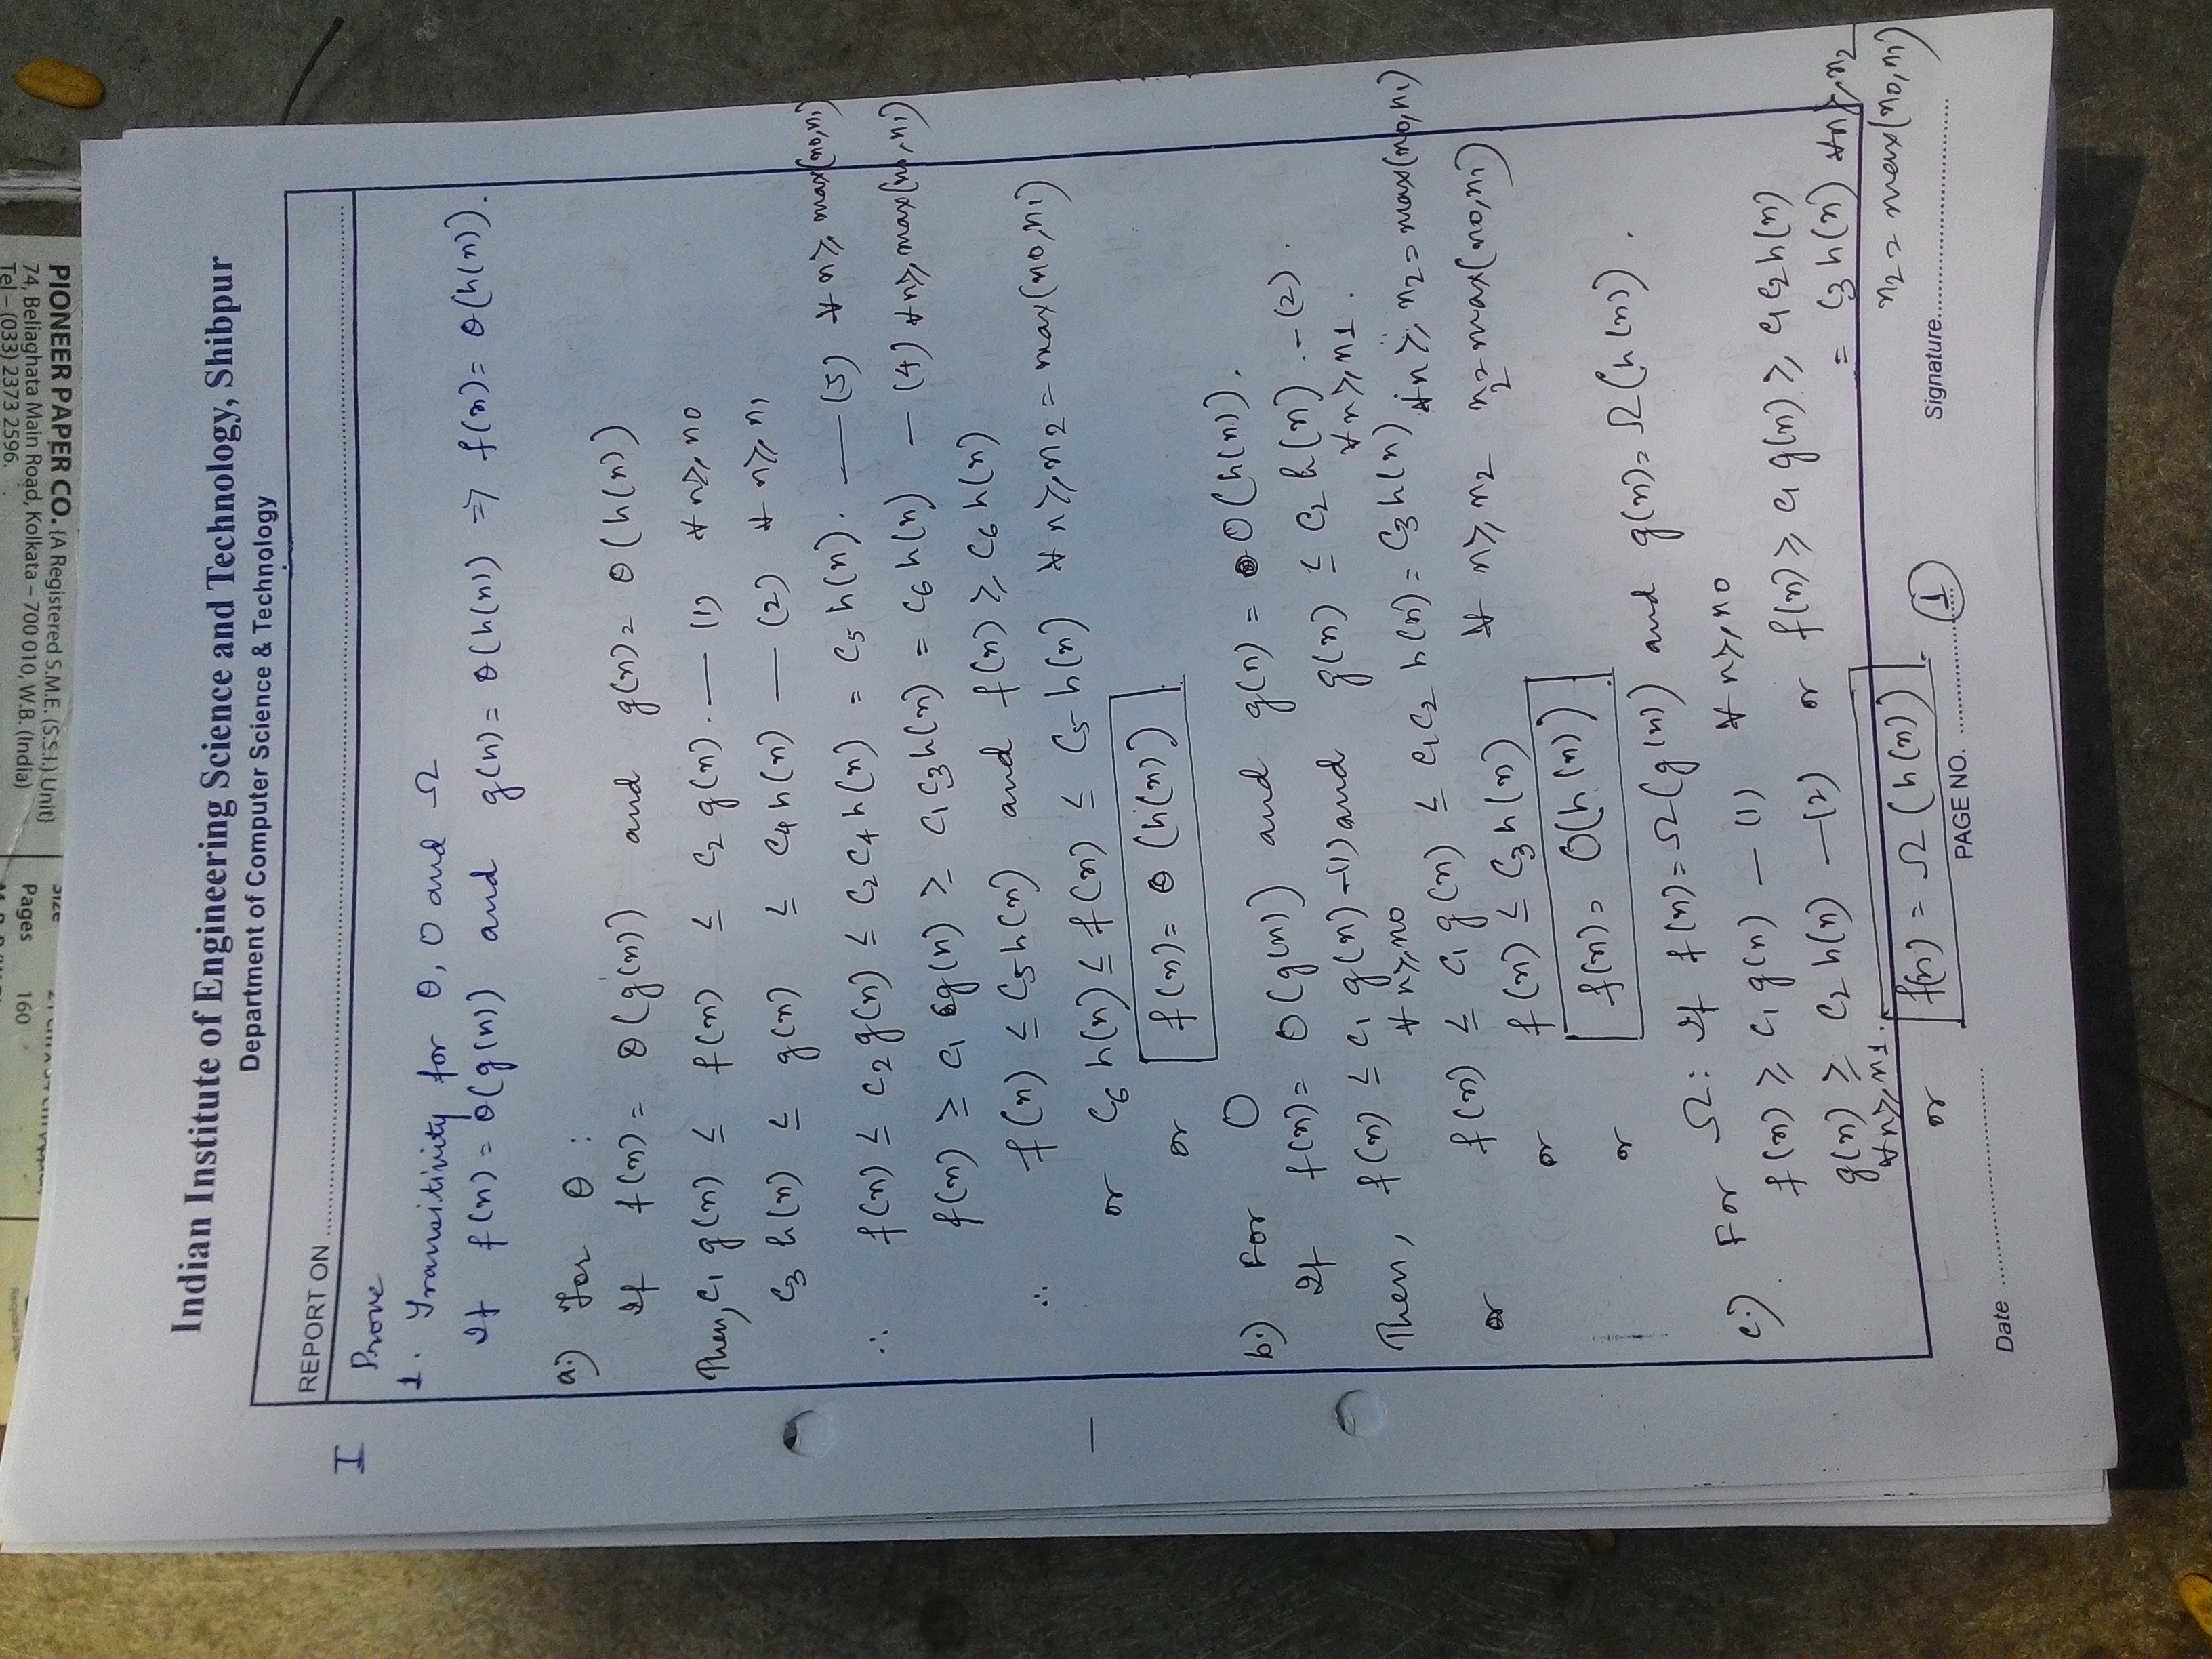 PIONEER PAPER CO. {A Registered S.M.E. (S.S.I.) Unit}
74, Beliaghata Main Road, Kolkata – 700 010, W.B. (India)
Tel – (033) 2373 2596.
Size
Pages 160
Indian Institute of Engineering Science and Technology, Shibpur
Department of Computer Science & Technology
REPORT ON
I
Prove
1. Transitivity for θ, O and Ω
If f(n) = θ(g(n)) and g(n) = θ(h(n)) ⇒ f(n) = θ(h(n)).
a.) For θ :
If f(n) = θ(g(n)) and g(n) = θ(h(n))
Then, c1 g(n) ≤ f(n) ≤ c2 g(n). — (1) ∀ n ≥ n0
c3 h(n) ≤ g(n) ≤ c4 h(n) — (2) ∀ n ≥ n1
∴ f(n) ≤ c2 g(n) ≤ c2 c4 h(n) = c5 h(n). — (3) ∀ n ≥ max(n0, n1)
f(n) ≥ c1 g(n) ≥ c1 c3 h(n) = c6 h(n) — (4) ∀ n ≥ max(n0, n1)
∴ f(n) ≤ c5 h(n) and f(n) ≥ c6 h(n)
or c6 h(n) ≤ f(n) ≤ c5 h(n) ∀ n ≥ n2 = max(n0, n1)
or f(n) = θ(h(n)).
b.) For O
If f(n) = O(g(n)) and g(n) = O(h(n)).
Then, f(n) ≤ c1 g(n) –(1) and g(n) ≤ c2 h(n). –(2).
∀ n ≥ n0 ∀ n ≥ n1.
or f(n) ≤ c1 g(n) ≤ c1 c2 h(n) = c3 h(n) ∀ n ≥ n2 = max(n0, n1)
or f(n) ≤ c3 h(n) ∀ n ≥ n2 n2 = max(n0, n1)
or f(n) = O(h(n)).
c.) For Ω: If f(n) = Ω(g(n)) and g(n) = Ω(h(n)).
f(n) ≥ c1 g(n) — (1) ∀ n ≥ n0
g(n) ≥ c2 h(n) — (2) or f(n) ≥ c1 g(n) ≥ c1 c2 h(n)
∀ n ≥ n1. = c3 h(n) ∀ n ≥ n2
n2 = max(n0, n1)
or f(n) = Ω(h(n)).
Date PAGE NO. 1 Signature